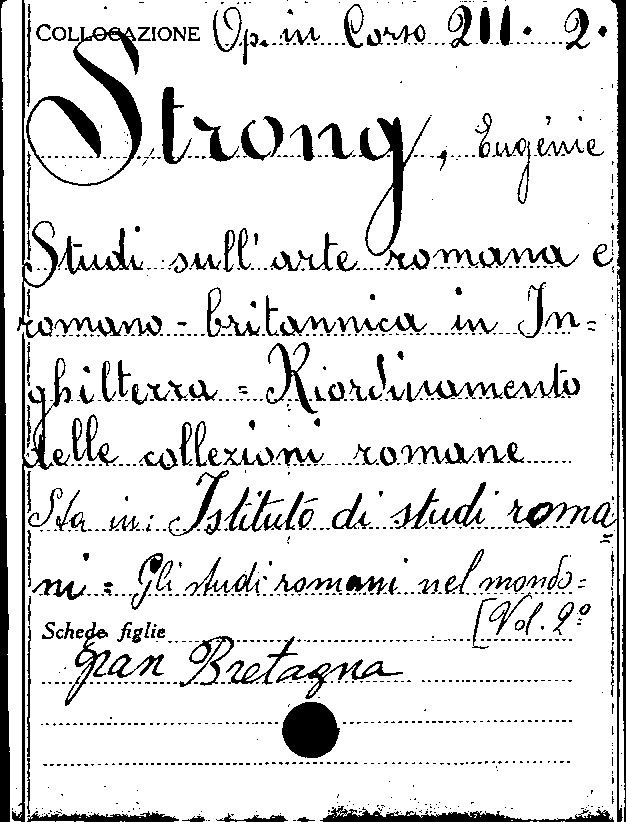 COLLOCAZIONE Op. in Corso 211. 2.
Strong, Eugénie
Studi sull'arte romana e
romano-britannica in In=
ghilterra = Riordinamento
delle collezioni romane
Sta in: Istituto di studi roma
ni = Gli studi romani nel mondo=
[Vol. 2º
Schede figlie
Gran Bretagna